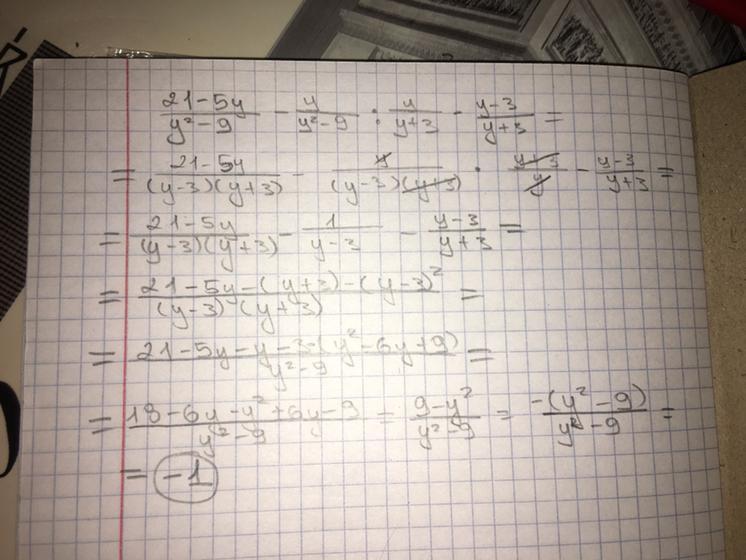 (21-5y)/(y²-9) - y/(y²-9) : y/(y+3) - (y-3)/(y+3) =
= (21-5y)/((y-3)(y+3)) - y/((y-3)(y+3)) · (y+3)/y - (y-3)/(y+3) =
= (21-5y)/((y-3)(y+3)) - 1/(y-3) - (y-3)/(y+3) =
= (21-5y-(y+3)-(y-3)²)/((y-3)(y+3)) =
= (21-5y-y-3-(y²-6y+9))/(y²-9) =
= (18-6y-y²+6y-9)/(y²-9) = (9-y²)/(y²-9) = (-(y²-9))/(y²-9) =
= -1